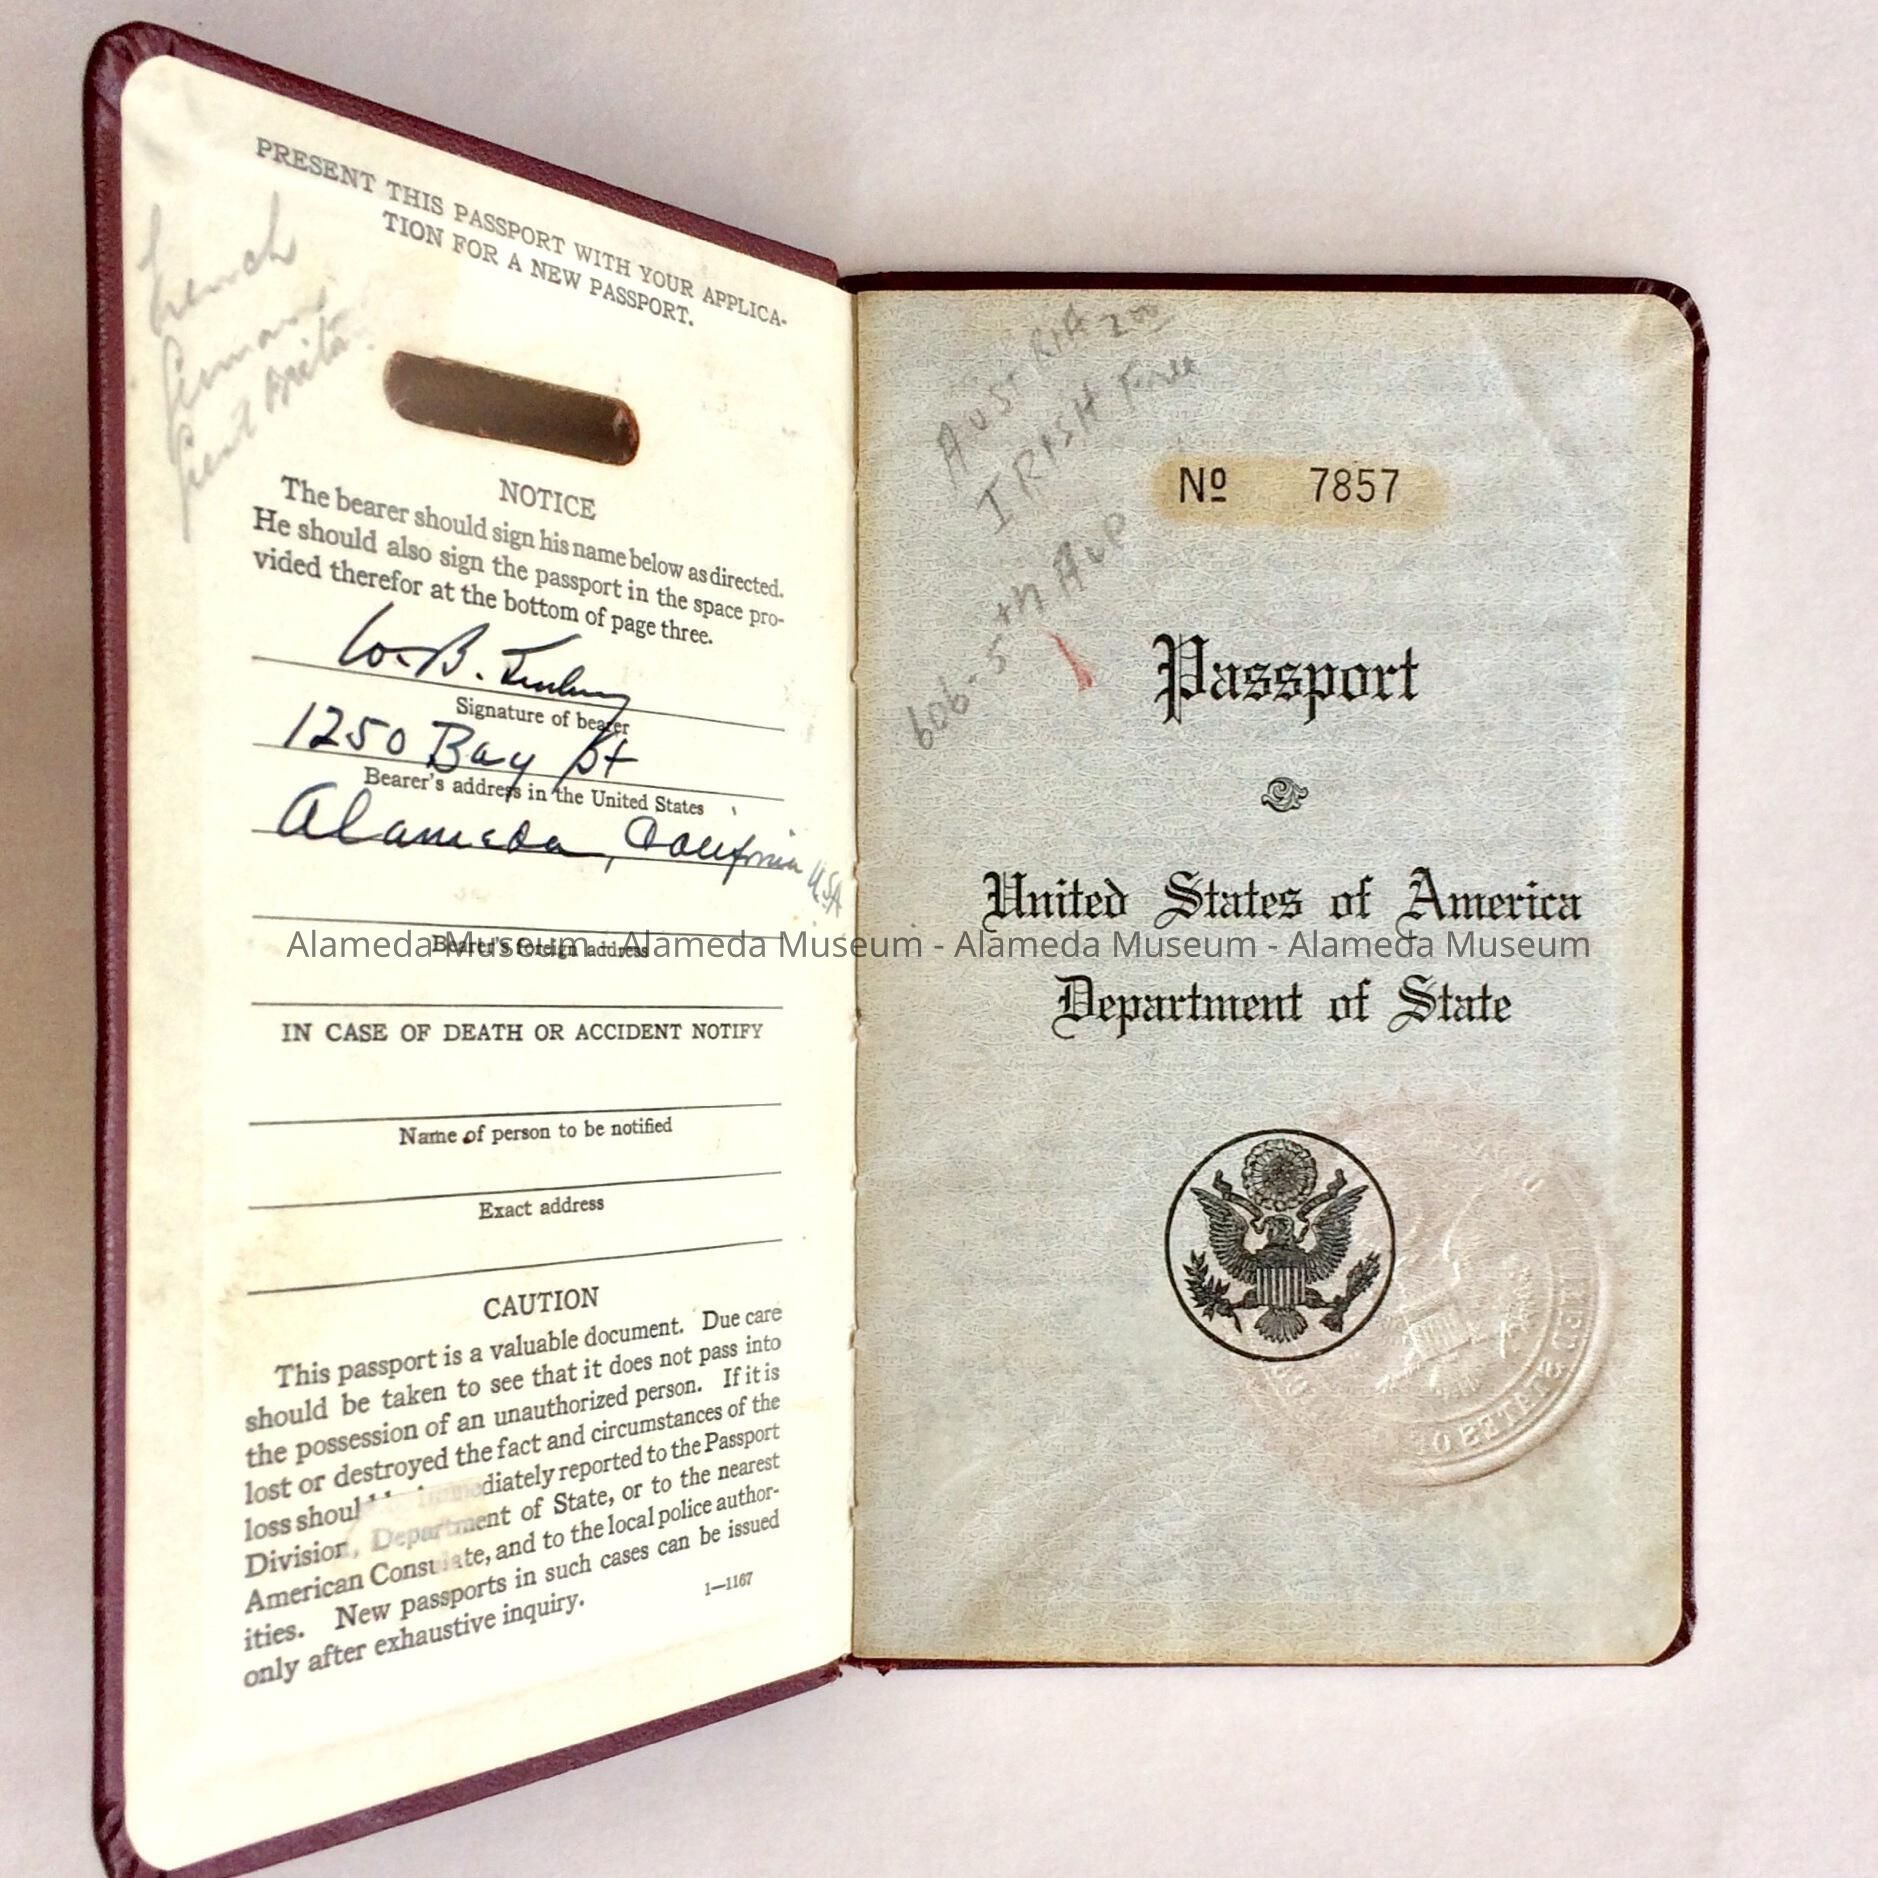 PRESENT THIS PASSPORT WITH YOUR APPLICA-
TION FOR A NEW PASSPORT.
French
German
Great Brita
NOTICE
The bearer should sign his name below as directed.
He should also sign the passport in the space pro-
vided therefor at the bottom of page three.
W. B.
Signature of bearer
1250 Bay St
Bearer's address in the United States
Alameda, California USA
Bearer's foreign address
IN CASE OF DEATH OR ACCIDENT NOTIFY
Name of person to be notified
Exact address
CAUTION
This passport is a valuable document. Due care
should be taken to see that it does not pass into
the possession of an unauthorized person. If it is
lost or destroyed the fact and circumstances of the
loss should be immediately reported to the Passport
Division, Department of State, or to the nearest
American Consulate, and to the local police author-
ities. New passports in such cases can be issued
only after exhaustive inquiry.
1—1167
AUSTRIA 200
IRISH Free
606-5th Ave
Nº 7857
Passport
United States of America
Department of State
Alameda Museum - Alameda Museum - Alameda Museum - Alameda Museum